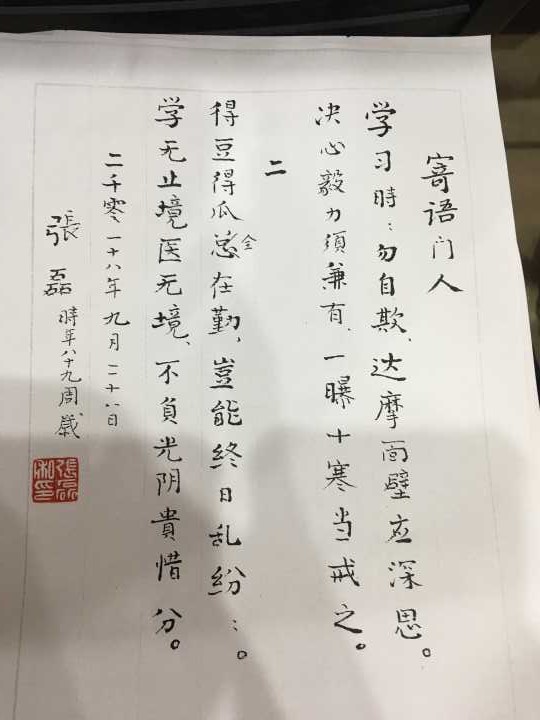 寄语门人
学习時：勿自欺、达摩面壁应深思。
决心毅力須兼有、一曝十寒当戒之。
二
得豆得瓜总全在勤、豈能終日乱紛：。
学无止境医无境、不負光阴貴惜分。
二千零一十八年九月二十八日
張磊 時年八十九周歲
張磊私印